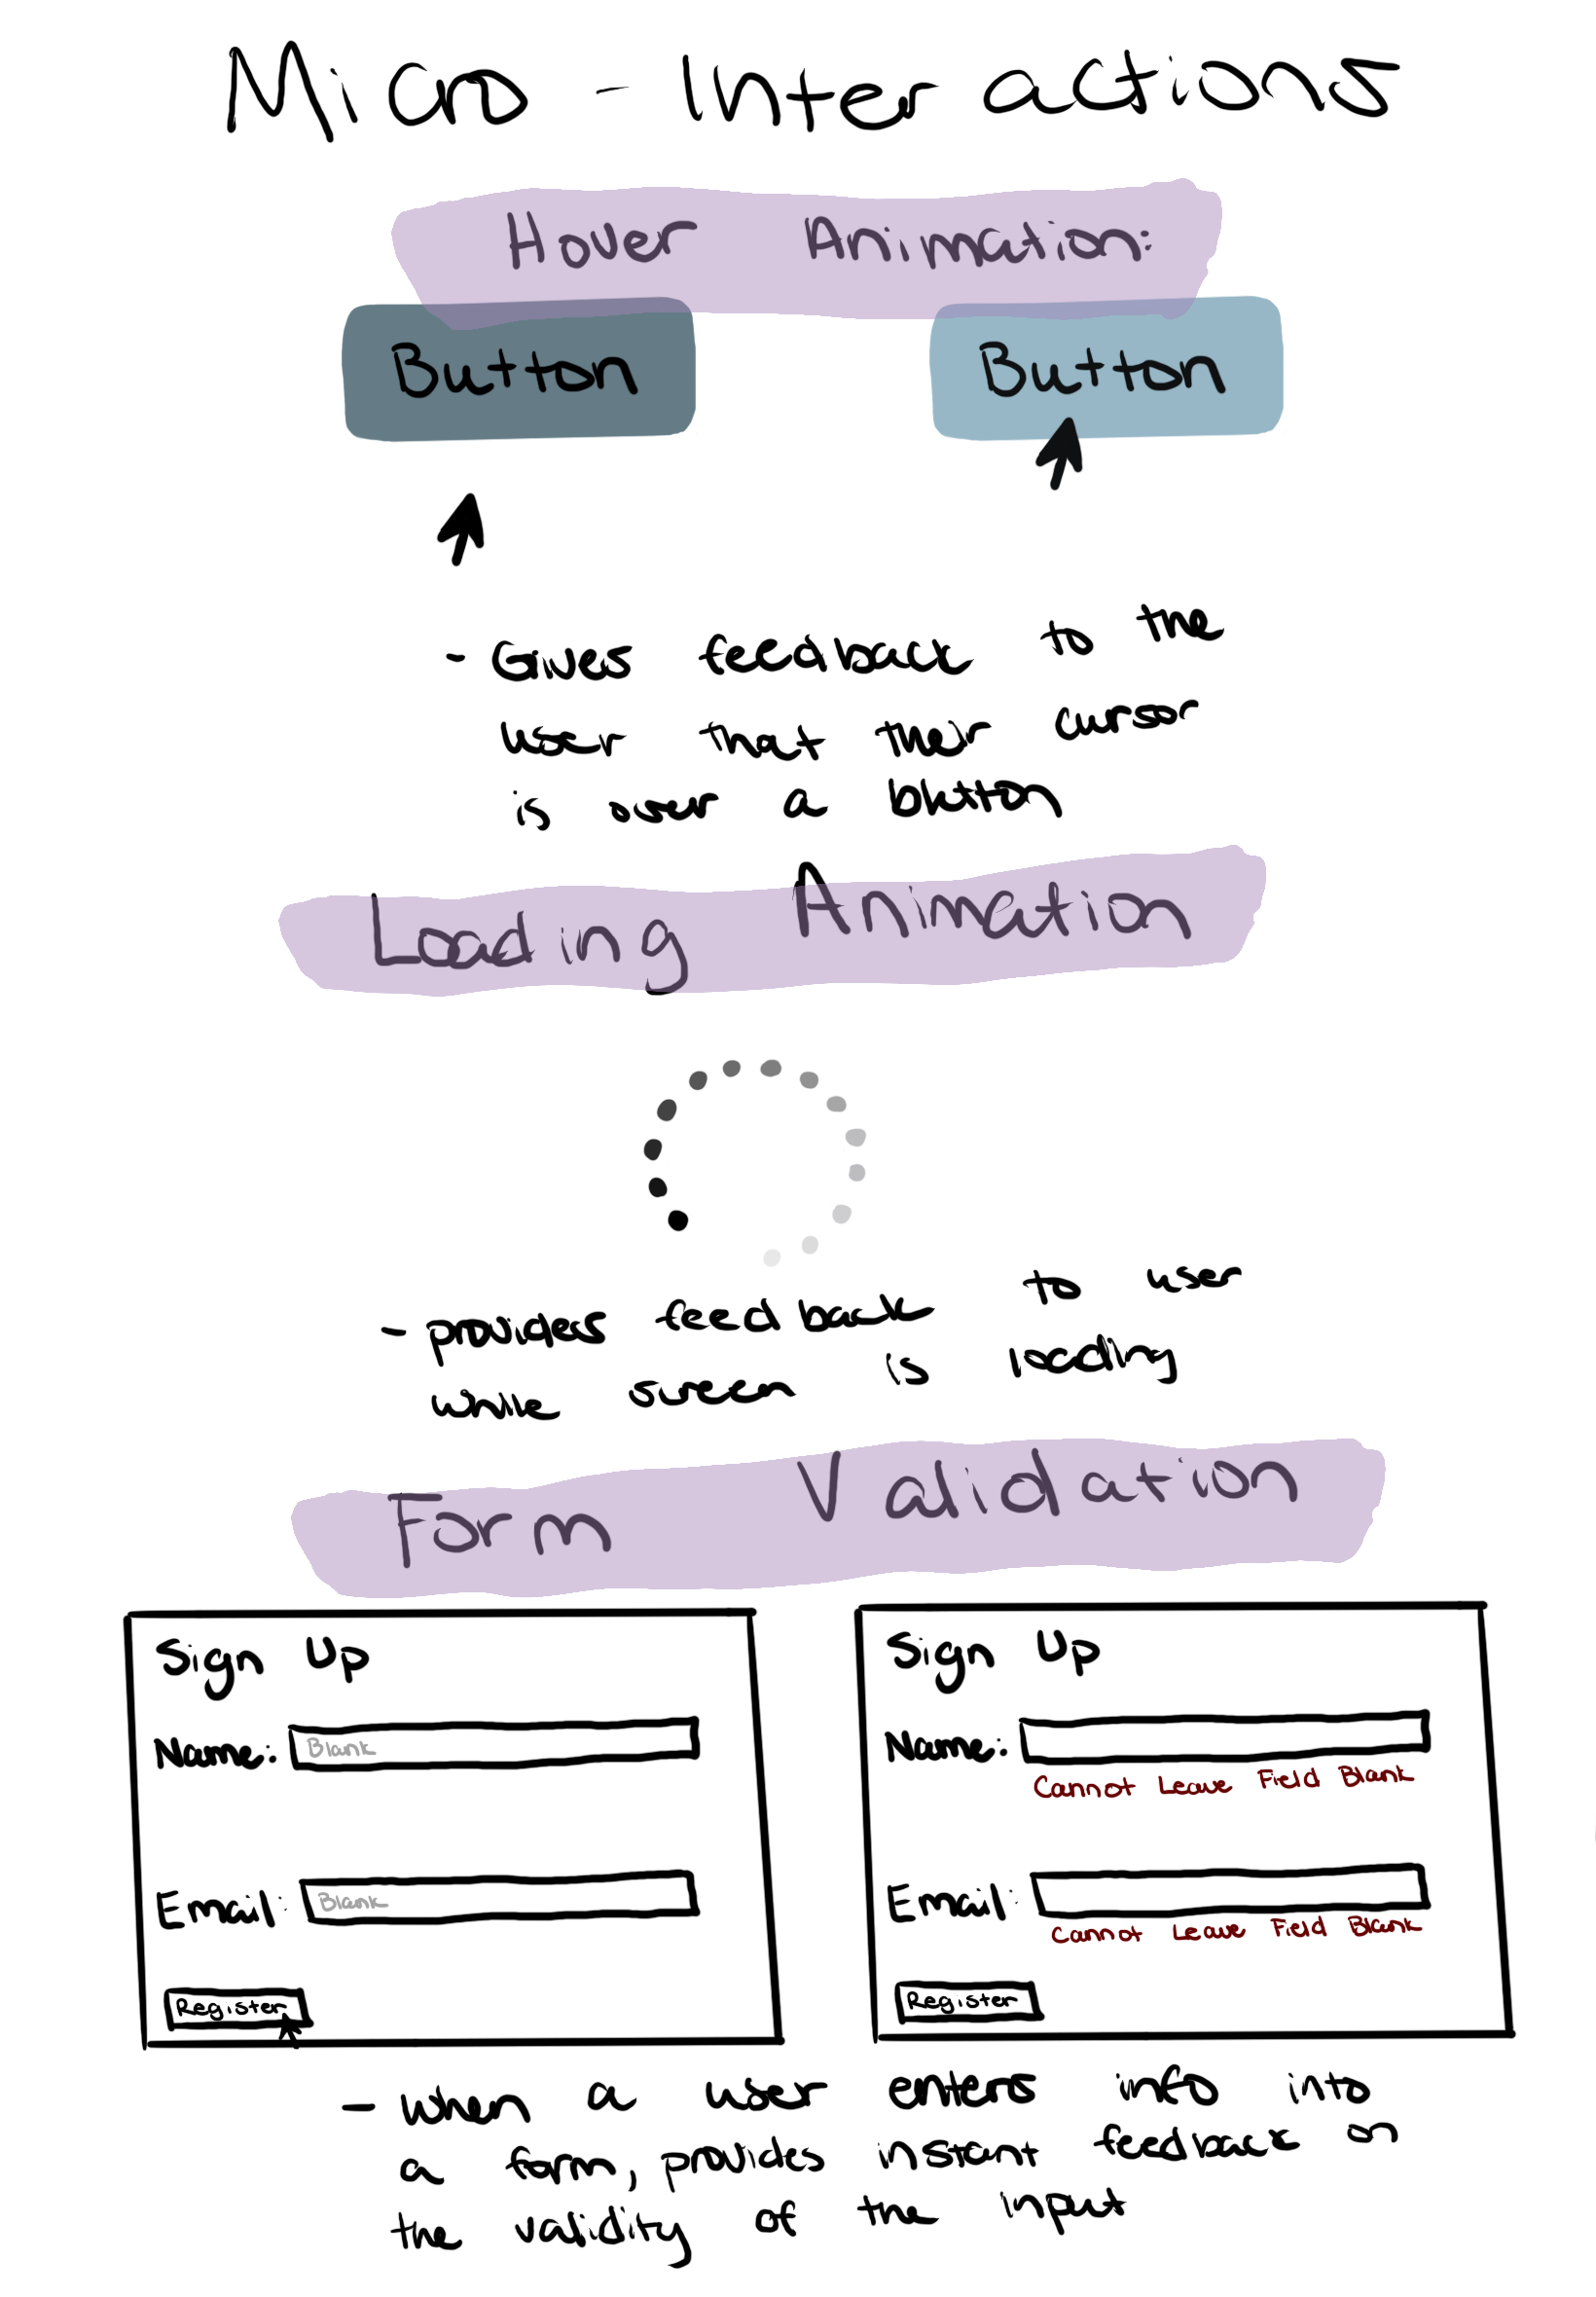 Micro-Interactions
Hover Animation:
Button
Button
- Gives feedback to the
user that their cursor
is over a button
Loading Animation
- provides feedback to user
while screen is loading
Form Validation
Sign Up
Name: Blank
Email: Blank
Register
Sign Up
Name:
Cannot Leave Field Blank
Email:
Cannot Leave Field Blank
Register
- when a user enters info into
a form, provides instant feedback on
the validity of the input